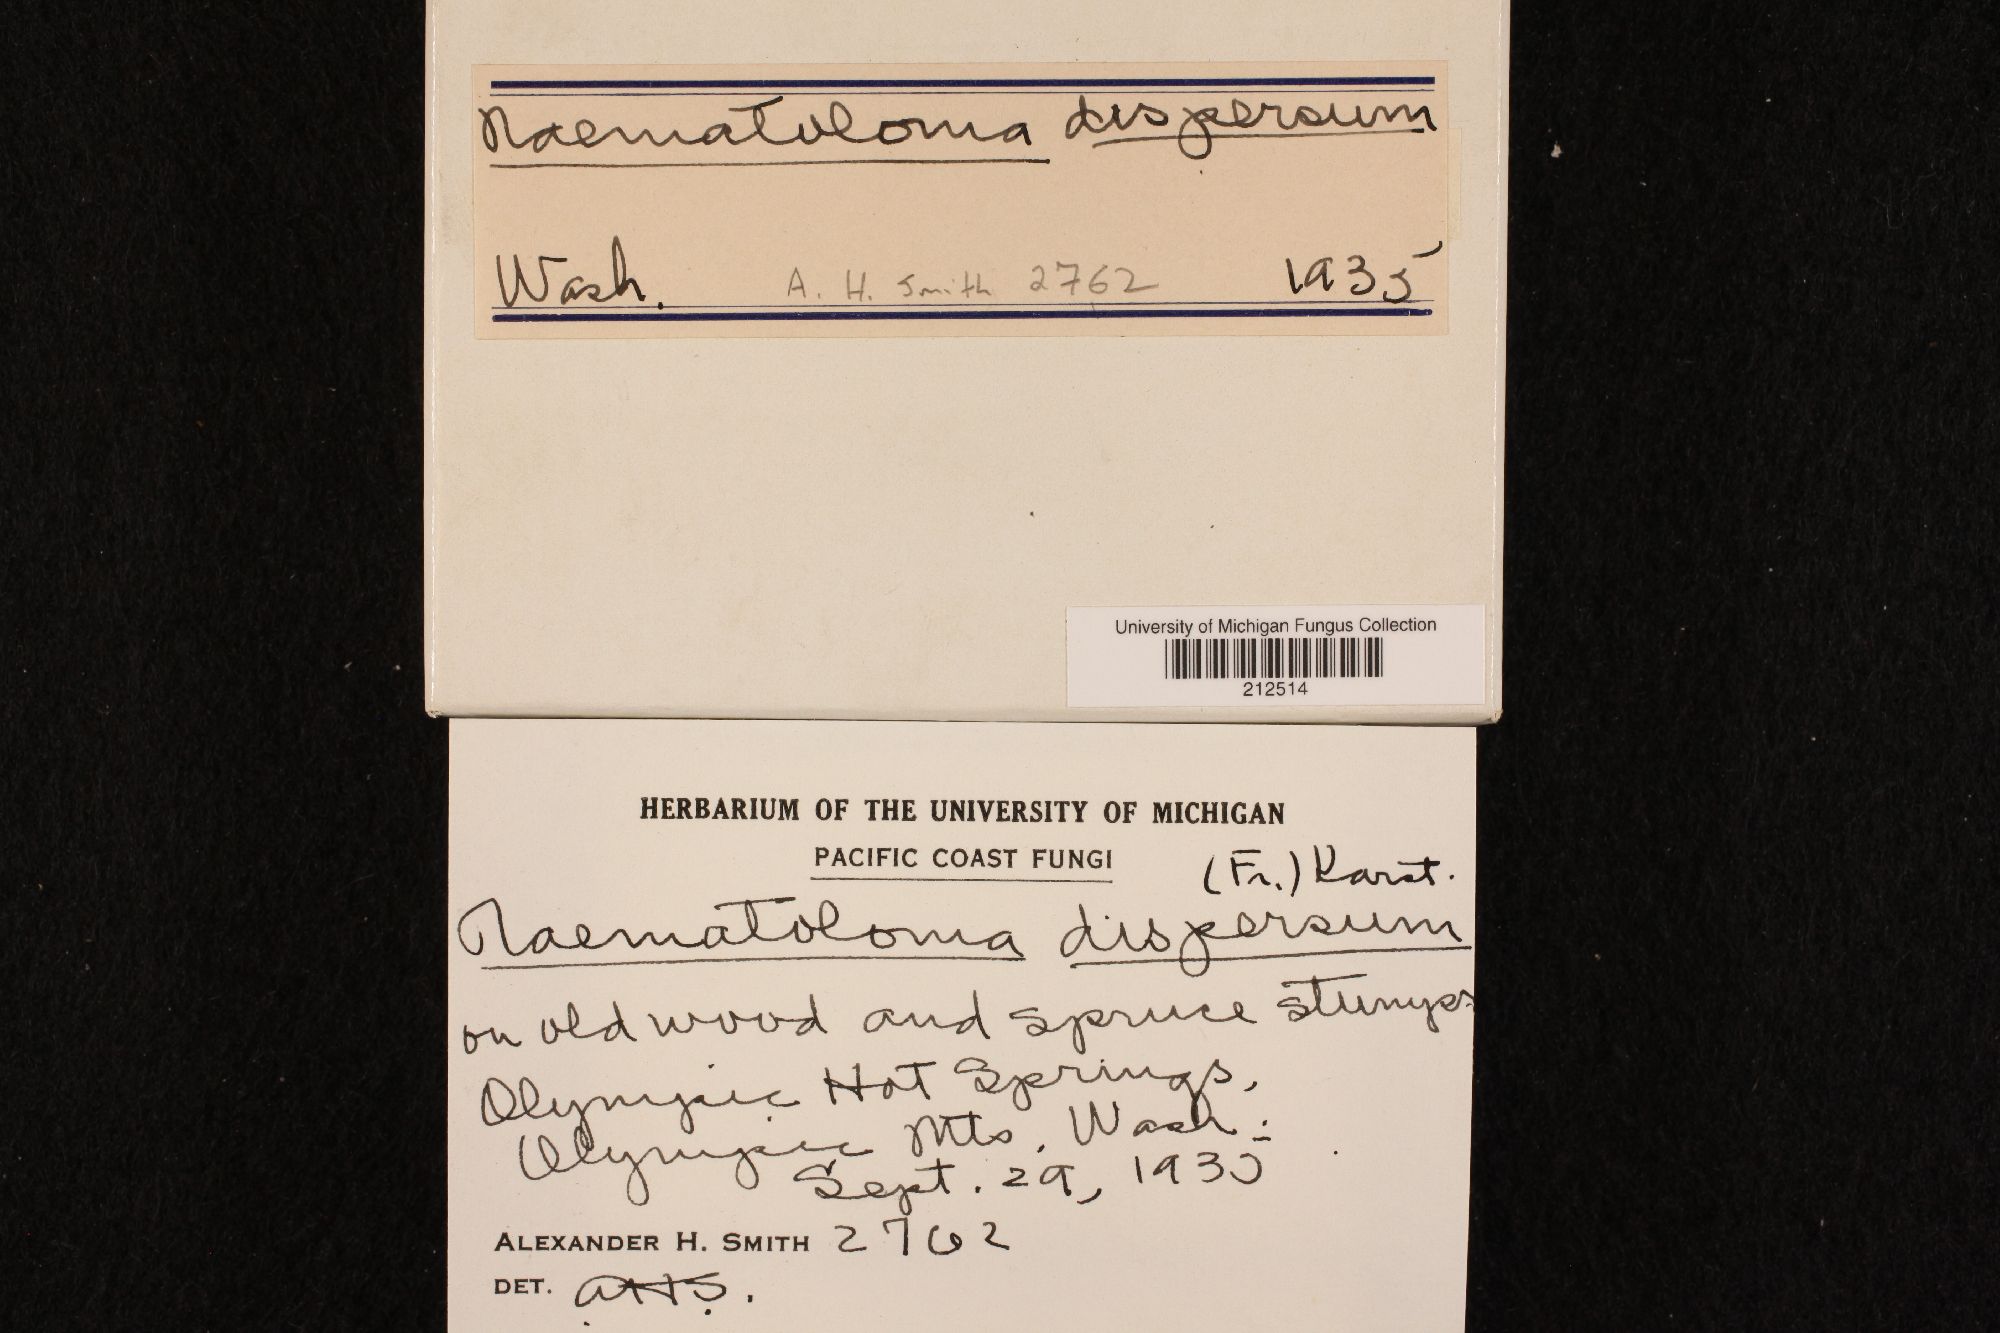 Naematoloma dispersum
Wash. A. H. Smith 2762 1935
University of Michigan Fungus Collection
212514
HERBARIUM OF THE UNIVERSITY OF MICHIGAN
PACIFIC COAST FUNGI
(Fr.) Karst.
Naematoloma dispersum
on old wood and spruce stumps
Olympic Hot Springs,
Olympic Mts. Wash.
Sept. 29, 1935
ALEXANDER H. SMITH 2762
DET. AHS.